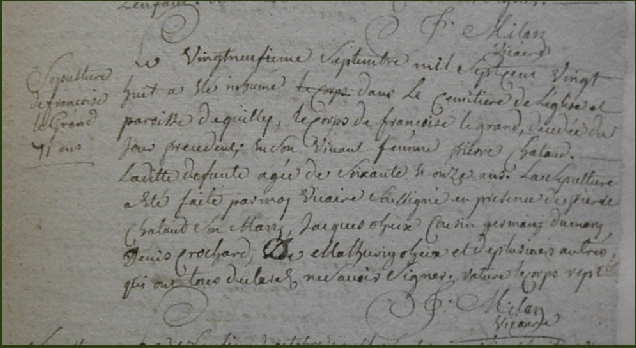 f. Milan
Vicaire
Sepulture
de francoise
le Grand
71 ans
Le Vingtneufieme Septembre mil Septcent Vingt
huit a ete inhumé le corps dans Le Cemitiere de Leglise et
paroisse de quilly, le corps de francoise le grand, decedée du
Jour precedent, en Son Vivant femme pierre Chalaud.
Laditte defunte agée de Soixante et onze ans. La Sepulture
a eté faite par moy Vicaire Soussigné en presence de pierre
Chalaud Son Mary, Jacques cousin germain du mary,
Denis Crochard, de Mathurin et de plusieurs autres,
qui ont tous declaré ne Savoir Signer. rature le corps
f. Milan
Vicaire